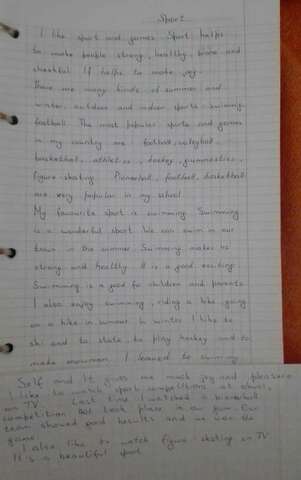 Sport
I like sport and games. Sport helps
to make people strong, healthy, brave and
cheerful. It helps to make joy.
There are many kinds of summer and
winter, outdoor and indoor sports: swimming,
football. The most popular sports and games
in my country are: football, volleyball,
basketball, athletics, hockey, gymnastics,
figure-skating. Pionerball, football, basketball
are very popular in my school.
My favourite sport is swimming. Swimming
is a wonderful sport. We can swim in our
town in the summer. Swimming makes us
strong and healthy. It is a good, exciting
Swimming is a good for children and parents
I also enjoy swimming, riding a bike, going
on a bike in summer. In winter I like to
ski and to skate, to play hockey and to
make snowman. I learned to swimming
Self and It gives me much joy and pleasure.
I like to watch sport competitions at school,
on TV. Last time I watched a pionerball
competition. It took place in our gym. Our
team showed good results and we won the
game.
I also like to watch figure-skating on TV.
It is a beautiful sport